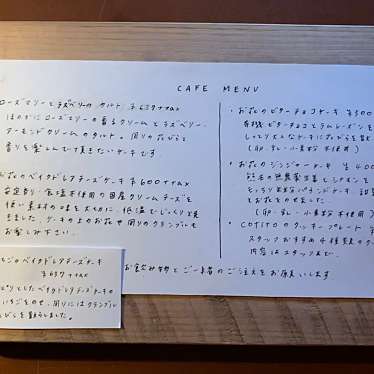 CAFE MENU
ローズマリーとラズベリーのタルト ¥637+tax
ほのかにローズマリーの香るクリームとラズベリー、
アーモンドクリームのタルト。周りの花びらと
香りを楽しんで頂きたいケーキです。
お花のベイクドレアチーズケーキ ¥600+tax
安定剤・食塩不使用の国産クリームチーズを
使い素材の味を大切に、低温でじっくり焼
きました。ケーキの上のお花や周りのクランブルも
お楽しみ下さい。
ちごのベイクドレアチーズケーキ
¥637+tax
としたベイクドレアチーズケーキの
いちごをのせ、周りにはクランブル
びらを散らしました。
・お花のビターチョコケーキ ¥500
有機ビターチョコとラムレーズンを
しっとり大人なケーキに花びらを
(卵・乳・小麦粉 不使用)
・お花のジンジャーケーキ ¥400
無農薬生姜とレモンを
パウンドケーキ。
とお花をのせました。
(卵・乳・小麦粉 不使用)
・COTITOのクッキープレート
スタッフおすすめ
内容はスタッフまで。
お飲み物とご一緒のご注文をお願いします